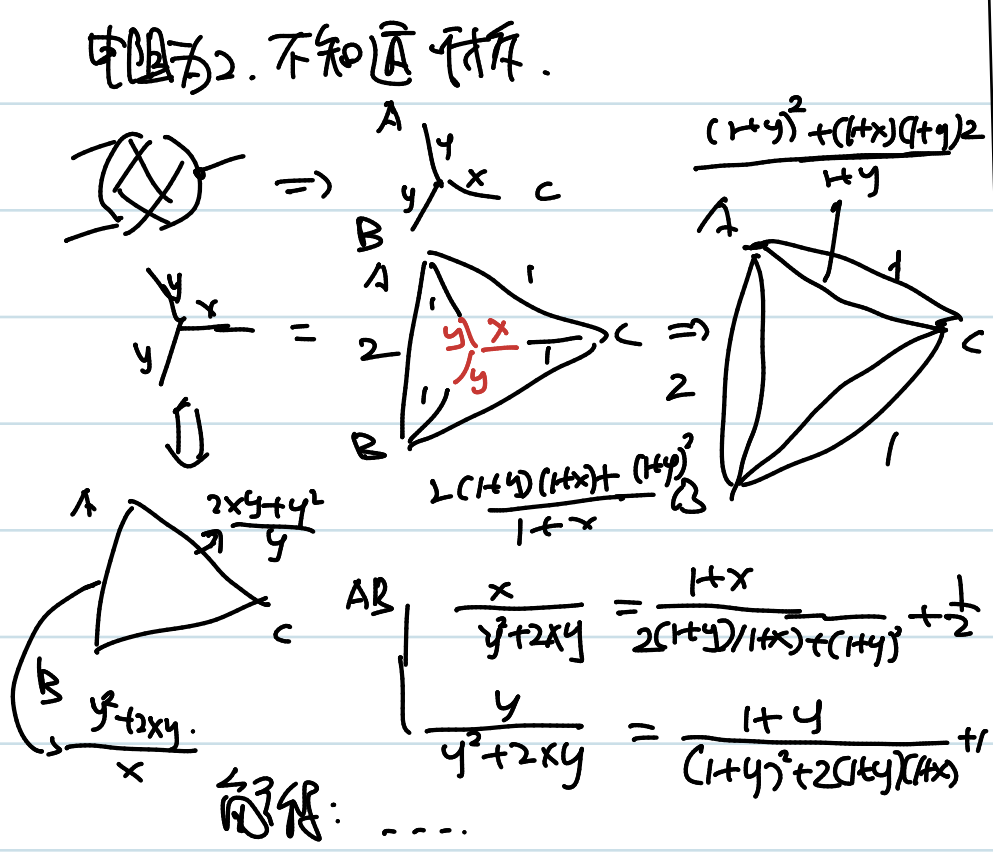 电阻为2.不知道咋拆.
⇒ A y x C y B
(1+y)²+(1+x)(1+y)2 / 1+y
y x y = A 1 1 y x C 2 1 y 1 B ⇒ A 1 C 2 1 B
2(1+y)(1+x)+(1+y)² / 1+x
A 2xy+y² / y C B
y²+2xy / x
AB x / y²+2xy = 1+x / 2(1+y)(1+x)+(1+y)² + 1/2
y / y²+2xy = 1+y / (1+y)²+2(1+y)(1+x) +1
解得: ....